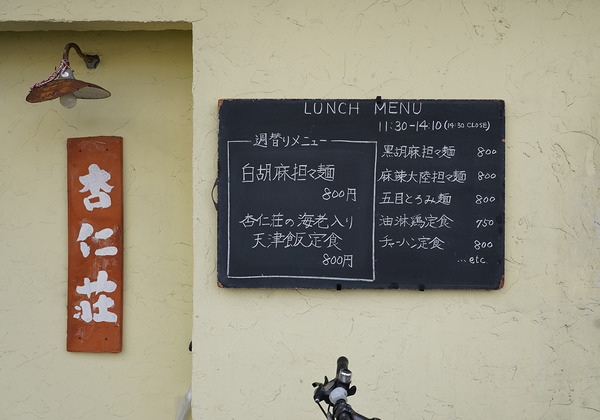 杏仁荘
LUNCH MENU
11:30-14:10 (14:30 CLOSE)
週替りメニュー
白胡麻担々麺
800円
杏仁荘の海老入り
天津飯定食
800円
黒胡麻担々麺 800
麻辣大陸担々麺 800
五目とろみ麺 800
油淋鶏定食 750
チャーハン定食 800
...etc